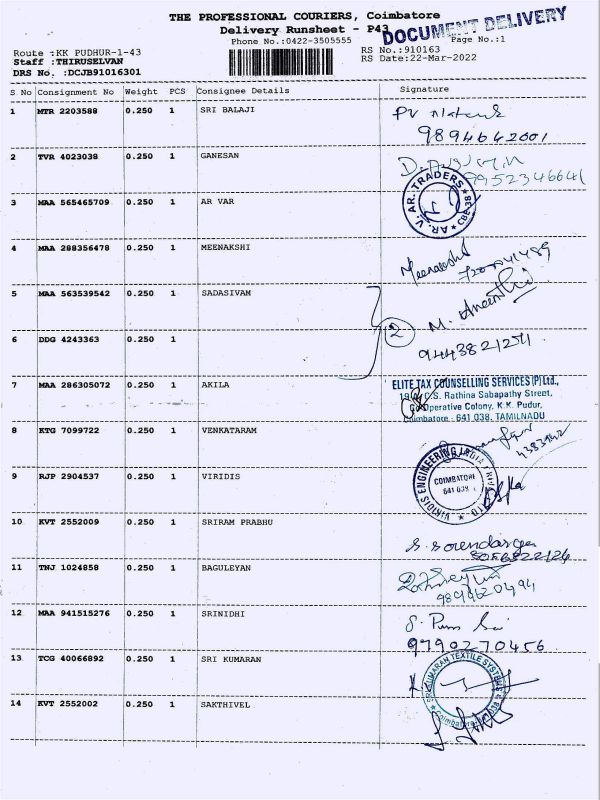 THE PROFESSIONAL COURIERS, Coimbatore
Delivery Runsheet - P43
DOCUMENT DELIVERY
Phone No.:0422-3505555
Page No.:1
Route :KK PUDHUR-1-43
RS No.:910163
Staff :THIRUSELVAN
RS Date:22-Mar-2022
DRS No. :DCJB91016301
S No Consignment No Weight PCS Consignee Details Signature
1 MTR 2203588 0.250 1 SRI BALAJI
9894642001
2 TVR 4023038 0.250 1 GANESAN
9952346641
3 MAA 565465709 0.250 1 AR VAR
AR. V. AR. TRADERS CBE-38
4 MAA 288356478 0.250 1 MEENAKSHI
Meenakshi
5 MAA 563539542 0.250 1 SADASIVAM
2
6 DDG 4243363 0.250 1
7 MAA 286305072 0.250 1 AKILA
ELITE TAX COUNSELLING SERVICES (P) Ltd.,
C.S. Rathina Sabapathy Street,
Co-Operative Colony, K.K. Pudur,
Coimbatore - 641 038, TAMILNADU
8 KTG 7099722 0.250 1 VENKATARAM
9 RJP 2904537 0.250 1 VIRIDIS
VIRIDIS ENGINEERING
COIMBATORE
641 038
10 KVT 2552009 0.250 1 SRIRAM PRABHU
11 TNJ 1024858 0.250 1 BAGULEYAN
12 MAA 941515276 0.250 1 SRINIDHI
9790270456
13 TCG 40066892 0.250 1 SRI KUMARAN
KUMARAN TEXTILE SYSTEMS
14 KVT 2552002 0.250 1 SAKTHIVEL